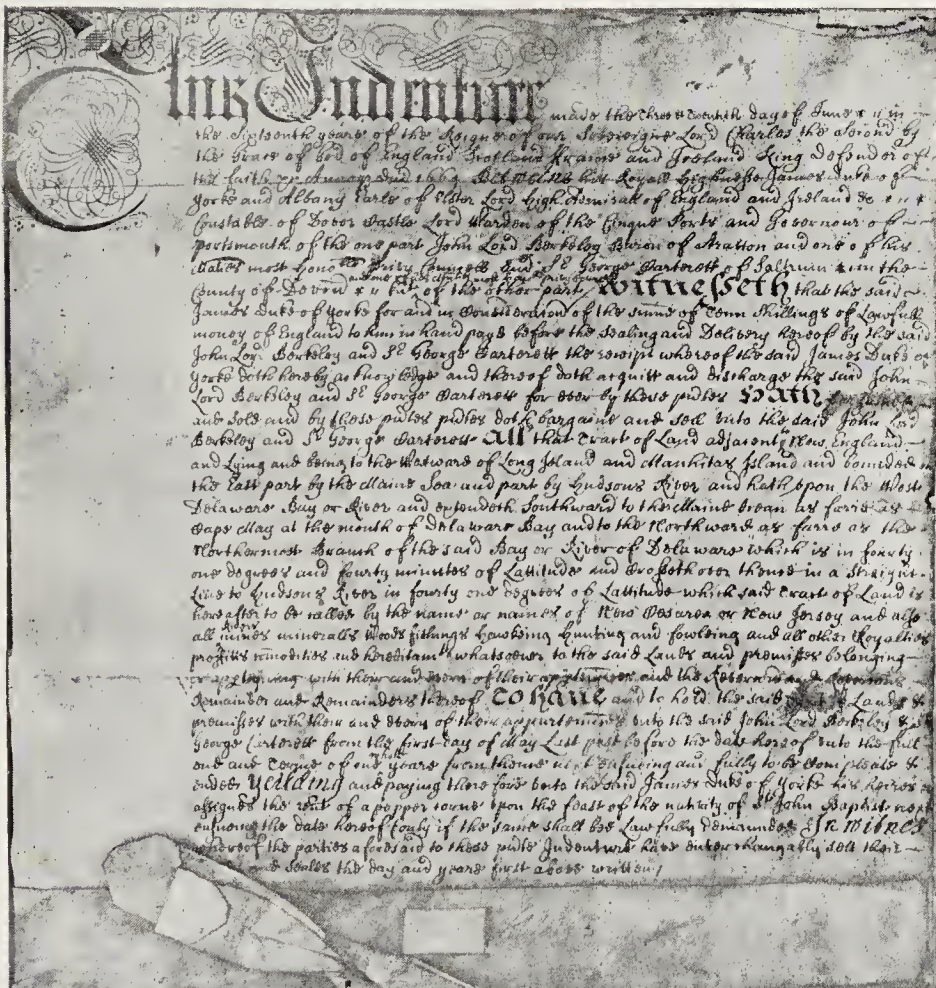 This Indenture made the three & twentith day of June in
the sixteenth yeare of the Reigne of our Sovereigne Lord Charles the second by
the Grace of God of England Scotland Fraunce and Ireland King Defender of
the faith Annoq Dni 1664 Betweene his Royall Highnesse James Duke of
Yorke and Albany Earle of Ulster Lord High Admirall of England and Ireland &c
Constable of Dover Castle Lord Warden of the Cinque Ports and Governour of
portsmouth of the one part John Lord Berkeley Baron of Stratton and one of his
Maties most Honoble Privy Councell And Sr George Carterett of Saltrum in the
County of Devon of the other part Witnesseth that the said
James Duke of Yorke for and in Consideration of the summe of Tenn Shillings of Lawfull
money of England to him in hand payd before the Sealing and Delivery hereof by the said
John Lord Berkeley and Sr George Carterett the receipt whereof the said James Duke of
Yorke doth hereby acknowledge and thereof doth acquitt and discharge the said John
Lord Berkeley and Sr George Carterett for ever by these pntes Hath
and Sold and by these pntes pntes doth bargaine and sell unto the said John Lord
Berkeley and Sr George Carterett All that Tract of Land adjacent to New England
and Lying and being to the Westward of Long Island and Manhitas Island and bounded on
the East part by the Maine Sea and part by Hudsons River and hath upon the West
Delaware Bay or River and extendeth Southward to the Maine Ocean as farre as
Cape May at the mouth of Delaware Bay and to the Northward as farre as the
Northermost Branch of the said Bay or River of Delaware which is in fourty
one degrees and fourty minutes of Lattitude and Crosseth over thence in a Straight
Line to Hudsons River in fourty one degrees of Lattitude which said Tract of Land is
hereafter to be called by the name or names of New Cesarea or New Jersey and also
all Rivers mines mineralls Woods fishings Hawking Hunting and fowleing and all other Royalties
proffitts comodities and hereditamts whatsoever to the said Lands and premisses belonging
or apperteyning with their and every of their appurtennces and the Reversion and Reversions
Remainder and Remainders thereof To have and to hold the said Lands &
premisses with their and every of their appurtennces unto the said John Lord Berkeley & Sr
George Carterett from the first day of May Last past before the date hereof unto the full
end and Terme of one whole yeare from thence next ensueing and fully to be Compleate &
ended Yeilding and paying therefore unto the said James Duke of Yorke his heires &
assignes the rent of a pepper corne upon the feast of the nativity of St John Baptist next
ensueing the date hereof (only if the same shall bee Lawfully demaunded) In Witnes
whereof the parties aforesaid to these pnte Indenture have enterchangably sett their
and Seales the day and yeare first above written /